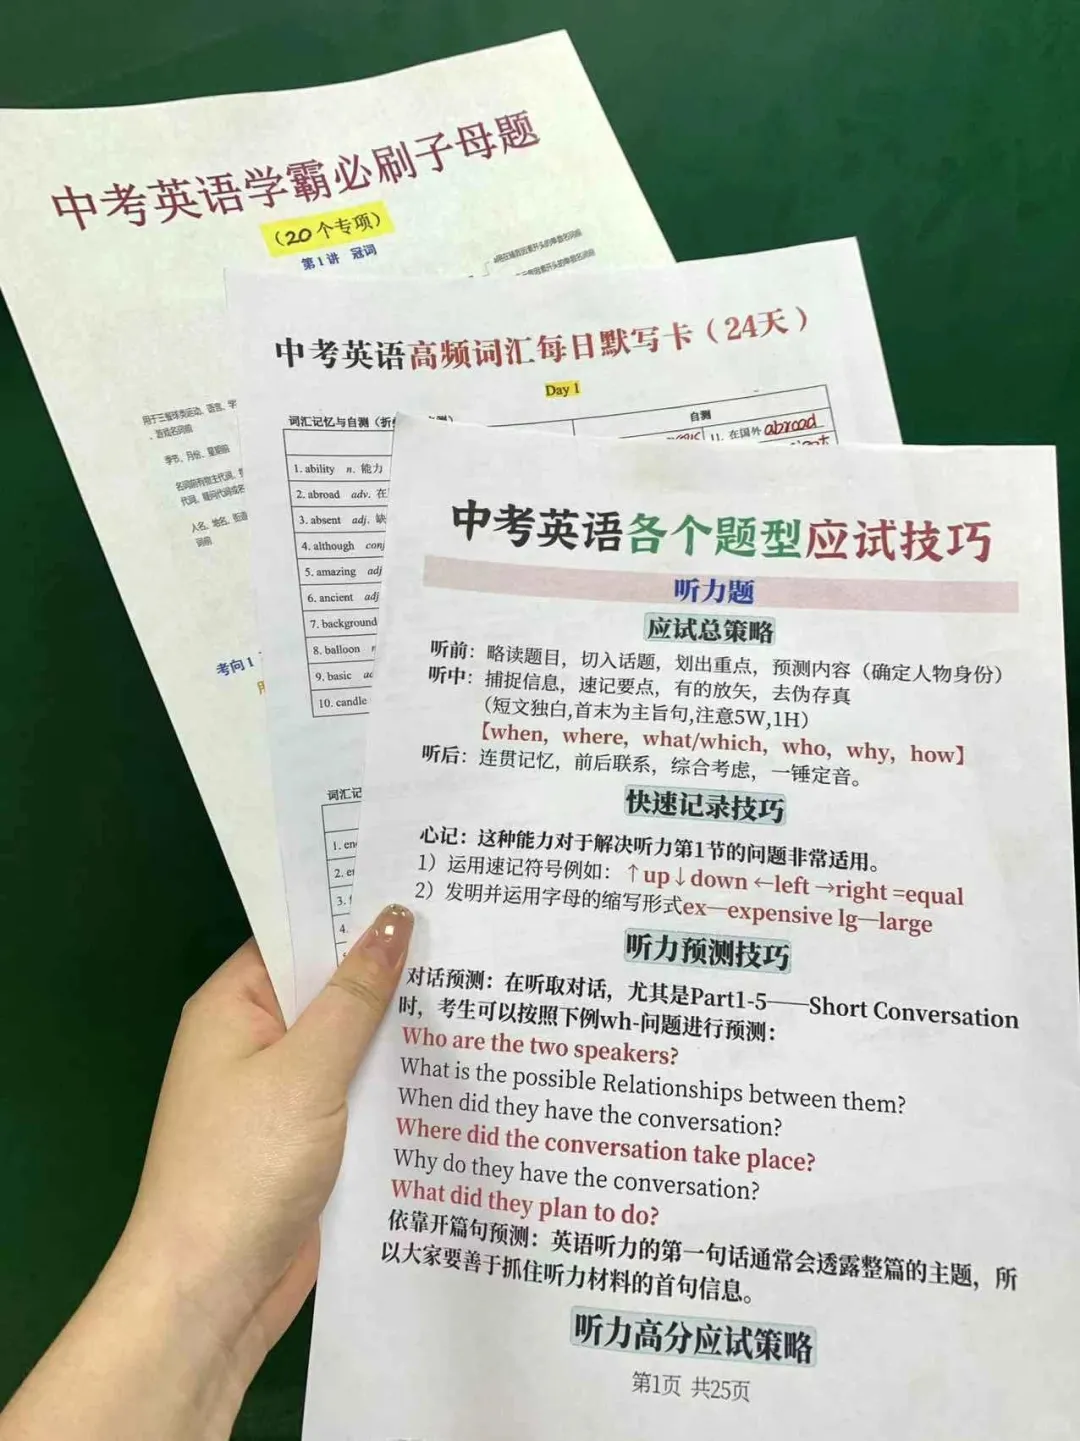 中考英语学霸必刷子母题
（20个专项）
第1讲 冠词
用于三餐球类运动、语言、学
、游戏名词前
季节、月份、星期前
人名、地名、街道
词前
考向1
中考英语高频词汇每日默写卡（24天）
Day 1
词汇记忆与自测（折
自测
11. 在国外 abroad
1. ability n. 能力
2. abroad adv. 在
3. absent adj. 缺
4. although conj
5. amazing adj
6. ancient adj
7. background
8. balloon n
9. basic ad
10. candle
词汇记
1. en
2. e
3.
4.
中考英语各个题型应试技巧
听力题
应试总策略
听前：略读题目，切入话题，划出重点，预测内容（确定人物身份）
听中：捕捉信息，速记要点，有的放矢，去伪存真
（短文独白,首末为主旨句,注意5W,1H）
【when，where，what/which，who，why，how】
听后：连贯记忆，前后联系，综合考虑，一锤定音。
快速记录技巧
心记：这种能力对于解决听力第1节的问题非常适用。
1）运用速记符号例如：↑up↓down ←left →right =equal
2）发明并运用字母的缩写形式ex—expensive lg—large
听力预测技巧
对话预测：在听取对话，尤其是Part1-5——Short Conversation
时，考生可以按照下例wh-问题进行预测：
Who are the two speakers?
What is the possible Relationships between them?
When did they have the conversation?
Where did the conversation take place?
Why do they have the conversation?
What did they plan to do?
依靠开篇句预测：英语听力的第一句话通常会透露整篇的主题，所
以大家要善于抓住听力材料的首句信息。
听力高分应试策略
第1页 共25页